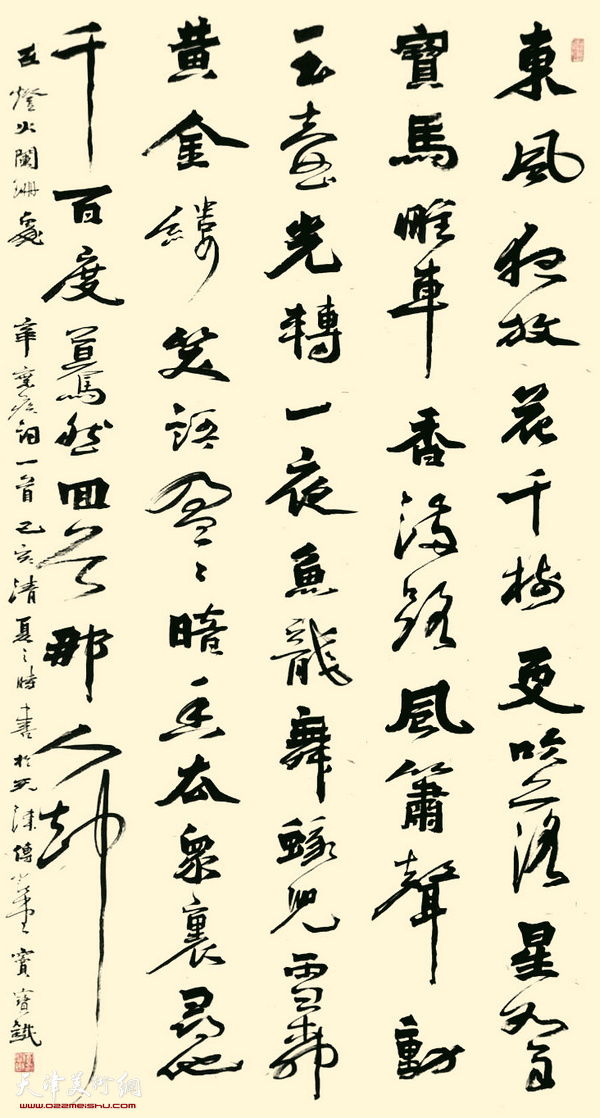 東風夜放花千樹更吹落星如雨
寶馬雕車香滿路風簫聲動
玉壺光轉一夜魚龍舞蛾兒雪柳
黃金縷笑語盈々暗香去眾裏尋他
千百度驀然回首那人卻
在燈火闌珊處 辛棄疾詞一首己亥清夏之時書於天津 竇寶鐵
天津美術網
www.022meishu.com